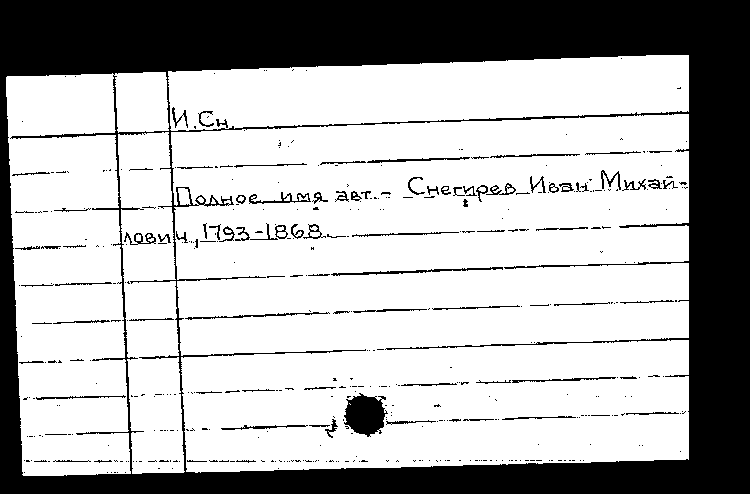 И.Сн.
Полное имя авт.- Снегирев Иван Михай-
лович, 1793-1868.